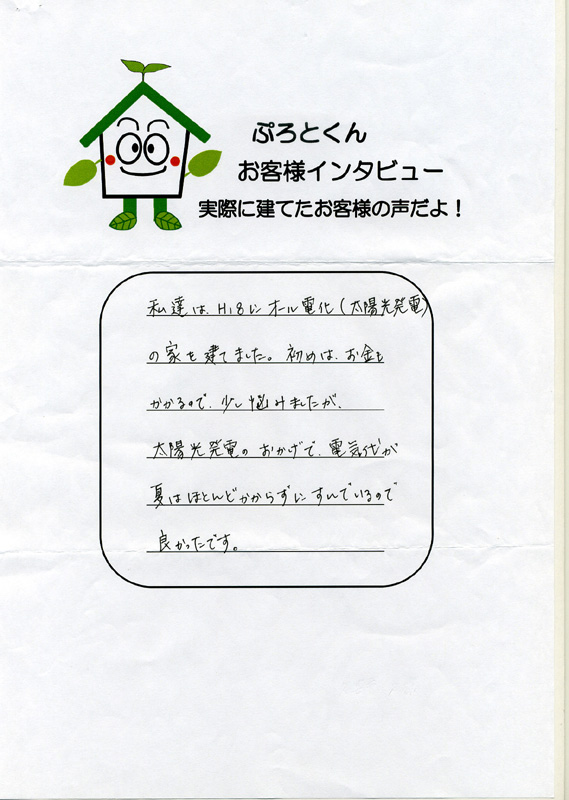 ぷろとくん
お客様インタビュー
実際に建てたお客様の声だよ！
私達は、H18に オール電化(太陽光発電)
の家を建てました。初めは、お金も
かかるので、少し悩みましたが、
太陽光発電の おかげで、電気代が
夏はほとんどかからずに すんでいるので
良かったです。